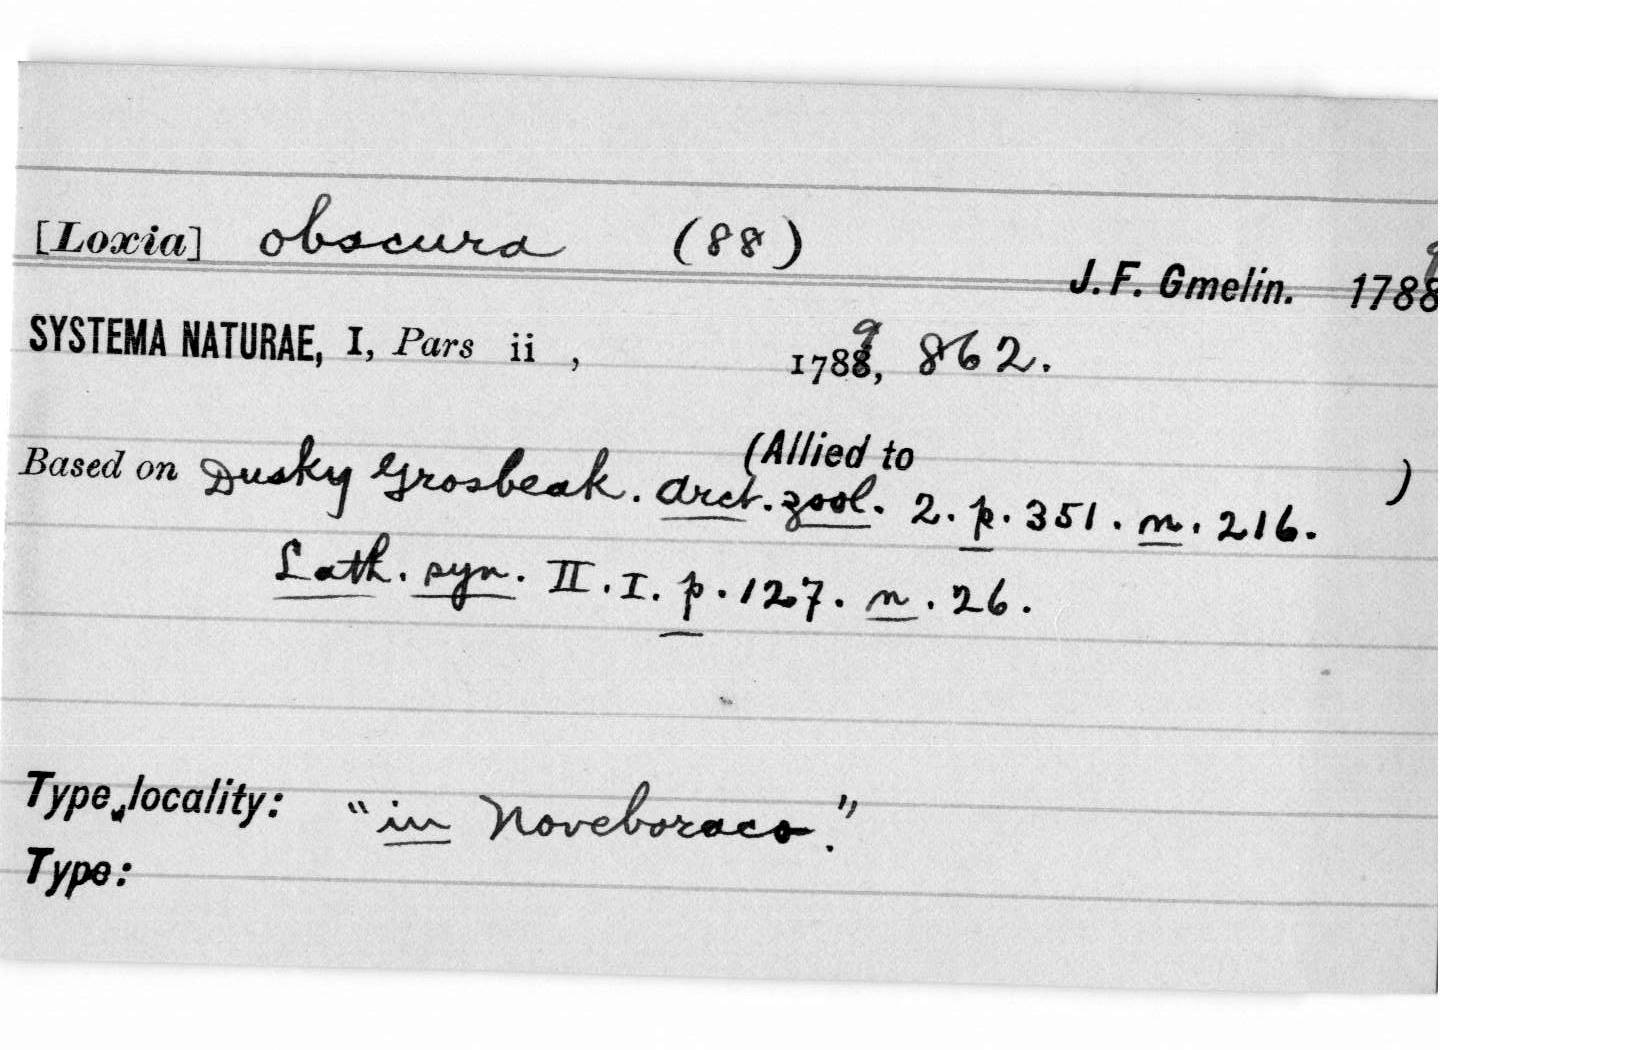 [Loxia] obscura (88)
J. F. Gmelin. 1789
SYSTEMA NATURAE, I, Pars ii , 1789, 862.
(Allied to )
Based on Dusky Grosbeak. Arct. zool. 2. p. 351. n. 216.
Lath. syn. II. I. p. 127. n. 26.
Type locality: "in Noveboraco."
Type: